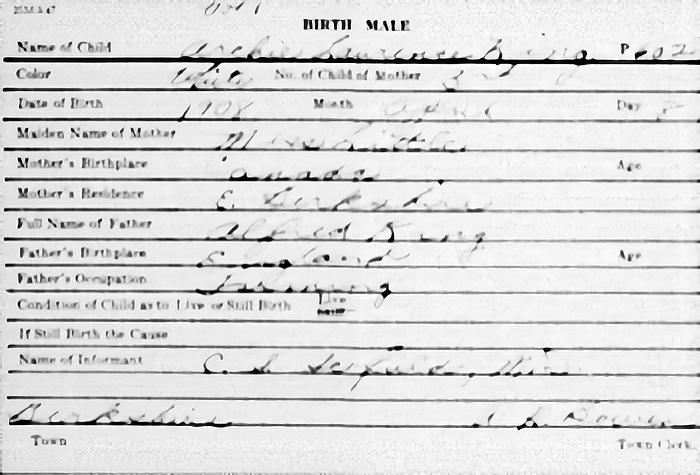 BIRTH MALE
Name of Child Archie Laurence King P 602
Color White No. of Child of Mother 3
Date of Birth 1908 Month April Day
Maiden Name of Mother Miss Little
Mother's Birthplace Canada Age
Mother's Residence E. Berkshire
Full Name of Father Alfred King
Father's Birthplace England Age
Father's Occupation Farming
Condition of Child as to Live or Still Birth Live
If Still Birth the Cause
Name of Informant C. S.
Berkshire
Town Town Clerk.